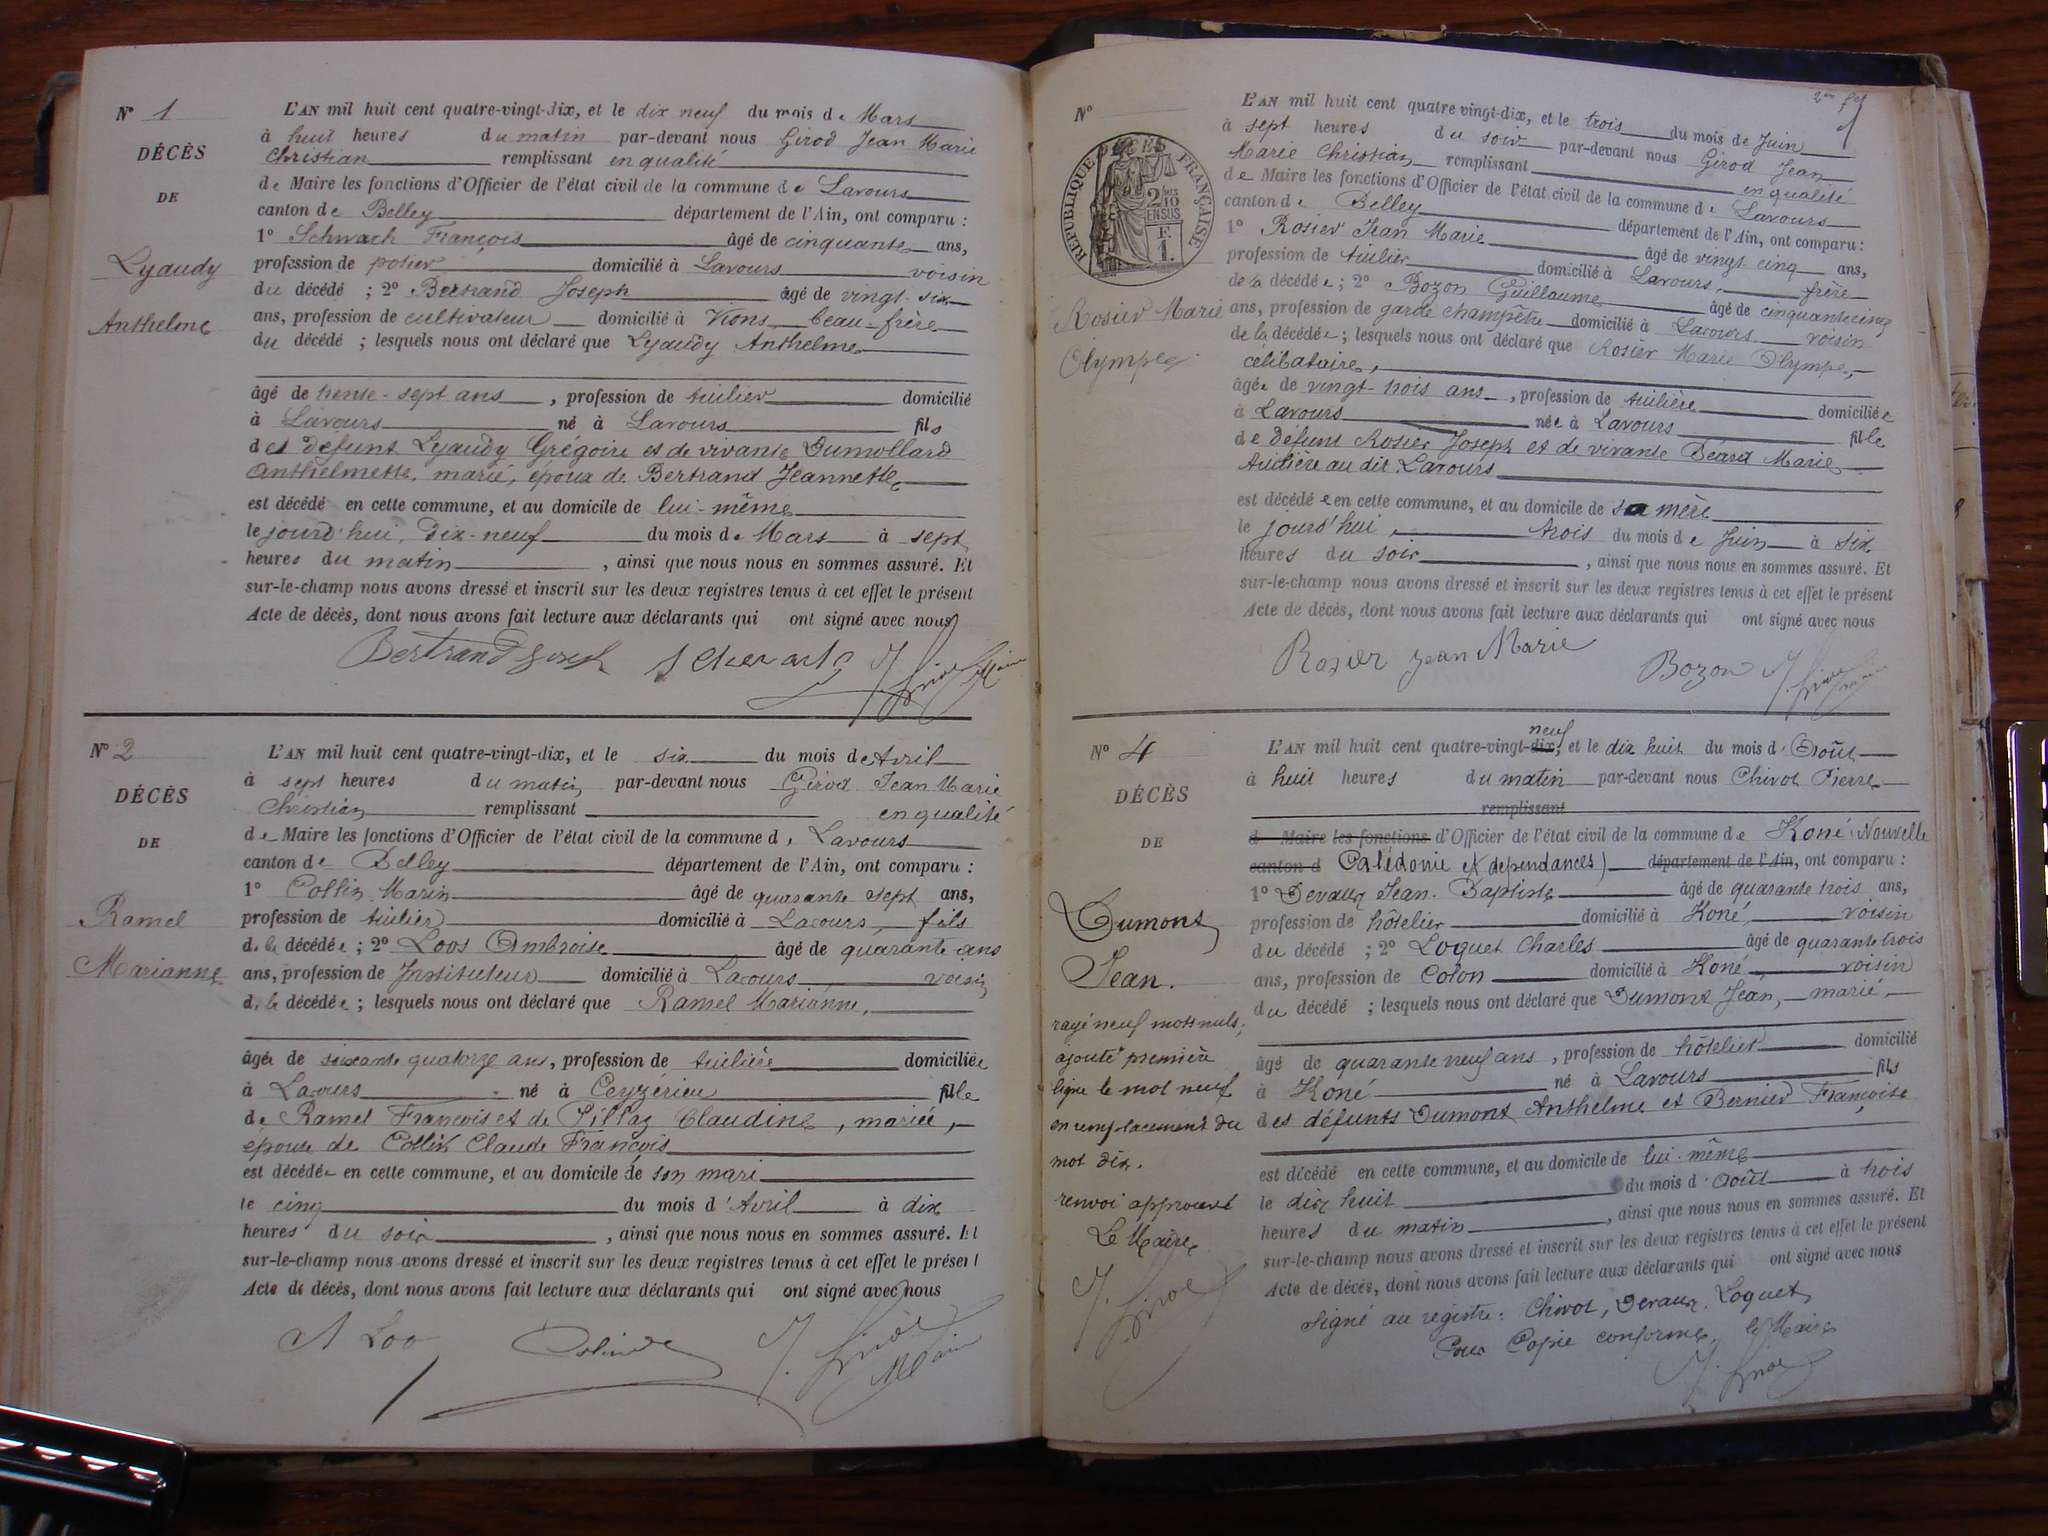 N° 1
DÉCÈS
DE
Lyaudy
Anthelme
L'AN mil huit cent quatre-vingt-dix, et le dix neuf du mois de Mars
à huit heures du matin par-devant nous Girod Jean Marie
Christian remplissant en qualité
de Maire les fonctions d'Officier de l'état civil de la commune de Lavours
canton de Belley département de l'Ain, ont comparu :
1° Schwach François âgé de cinquante ans,
profession de potier domicilié à Lavours voisin
du décédé ; 2° Bertrand Joseph âgé de vingt-six
ans, profession de cultivateur domicilié à Vions beau-frère
du décédé ; lesquels nous ont déclaré que Lyaudy Anthelme
âgé de trente-sept ans, profession de tuilier domicilié
à Lavours né à Lavours fils
des défunt Lyaudy Grégoire et de vivante Dumollard
Anthelmette, marié, époux de Bertrand Jeannette
est décédé en cette commune, et au domicile de lui-même
le jourd'hui, dix-neuf du mois de Mars à sept
heures du matin, ainsi que nous nous en sommes assuré. Et
sur-le-champ nous avons dressé et inscrit sur les deux registres tenus à cet effet le présent
Acte de décès, dont nous avons fait lecture aux déclarants qui ont signé avec nous
Bertrand Joseph J. Girod Maire
N° 2
DÉCÈS
DE
Ramel
Marianne
L'AN mil huit cent quatre-vingt-dix, et le six du mois de Avril
à sept heures du matin par-devant nous Girod Jean Marie
Christian remplissant en qualité
de Maire les fonctions d'Officier de l'état civil de la commune de Lavours
canton de Belley département de l'Ain, ont comparu :
1° Collin Marin âgé de quarante sept ans,
profession de tuilier domicilié à Lavours, fils
de la décédée ; 2° Loos Ambroise âgé de quarante ans
ans, profession de Instituteur domicilié à Lavours voisin
de la décédée ; lesquels nous ont déclaré que Ramel Marianne,
âgée de soixante quatorze ans, profession de tuilière domiciliée
à Lavours né à Ceyzérieu fille
de Ramel François et de Pillaz Claudine, mariée,
épouse de Collin Claude François
est décédée en cette commune, et au domicile de son mari
le cinq du mois d'Avril à dix
heures du soir, ainsi que nous nous en sommes assuré. Et
sur-le-champ nous avons dressé et inscrit sur les deux registres tenus à cet effet le présent
Acte de décès, dont nous avons fait lecture aux déclarants qui ont signé avec nous
A Loos J. Girod Maire
2me fet
N°
RÉPUBLIQUE FRANÇAISE
DÉCÈS
2/10 EN SUS
F. 1.
Rosier Marie
Olympe
L'AN mil huit cent quatre vingt-dix, et le trois du mois de Juin
à sept heures du soir par-devant nous Girod Jean
Marie Christian remplissant en qualité
de Maire les fonctions d'Officier de l'état civil de la commune de Lavours
canton de Belley département de l'Ain, ont comparu :
1° Rosier Jean Marie âgé de vingt cinq ans,
profession de tuilier domicilié à Lavours, frère
de la décédée ; 2° Bozon Guillaume âgé de cinquante cinq
ans, profession de garde champêtre domicilié à Lavours voisin
de la décédée ; lesquels nous ont déclaré que Rosier Marie Olympe,
célibataire,
âgée de vingt-trois ans, profession de tuilière domiciliée
à Lavours née à Lavours fille
de défunt Rosier Joseph et de vivante Béard Marie
tuilière au dit Lavours
est décédée en cette commune, et au domicile de sa mère
le jourd'hui, trois du mois de Juin à six
heures du soir, ainsi que nous nous en sommes assuré. Et
sur-le-champ nous avons dressé et inscrit sur les deux registres tenus à cet effet le présent
Acte de décès, dont nous avons fait lecture aux déclarants qui ont signé avec nous
Rosier Jean Marie Bozon J. Girod
N° 4
DÉCÈS
DE
Dumont
Jean.
rayé neuf mots nuls;
ajouté première
ligne le mot neuf
en remplacement du
mot dix.
renvoi approuvé
Le Maire
J. Girod
neuf
L'AN mil huit cent quatre-vingt-dix, et le dix huit du mois d'Août
à huit heures du matin par-devant nous Chivot Pierre
remplissant
d Maire les fonctions d'Officier de l'état civil de la commune de Koné (Nouvelle
canton d Calédonie et dépendances) département de l'Ain, ont comparu :
1° Devaux Jean-Baptiste âgé de quarante trois ans,
profession de hôtelier domicilié à Koné, voisin
du décédé ; 2° Loquet Charles âgé de quarante trois
ans, profession de Colon domicilié à Koné, voisin
du décédé ; lesquels nous ont déclaré que Dumont Jean, marié,
âgé de quarante neuf ans, profession de hôtelier domicilié
à Koné né à Lavours fils
des défunts Dumont Anthelme et Bernier Françoise
est décédé en cette commune, et au domicile de lui-même
le dix huit du mois d'Août à trois
heures du matin, ainsi que nous nous en sommes assuré. Et
sur-le-champ nous avons dressé et inscrit sur les deux registres tenus à cet effet le présent
Acte de décès, dont nous avons fait lecture aux déclarants qui ont signé avec nous
Signé au registre : Chivot, Devaux, Loquet
Pour Copie conforme, le Maire
J. Girod